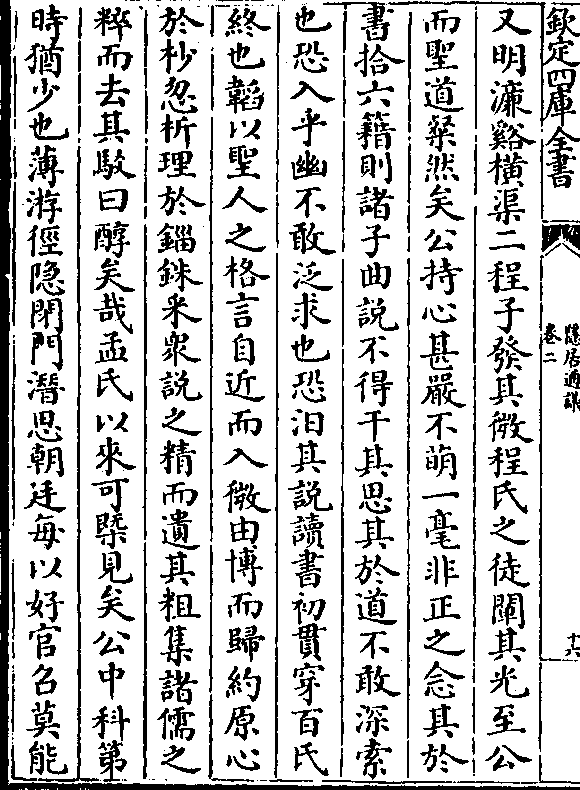 欽定四庫全書
隱居通議
卷二
十六
又明濂谿橫渠二程子發其微程氏之徒闡其光至公
而聖道粲然矣公持心甚嚴不萌一毫非正之念其於
書拾六籍則諸子曲説不得干其思其於道不敢深索
也恐入乎幽不敢泛求也恐汨其説讀書初貫穿百氏
終也韜以聖人之格言自近而入微由博而歸約原心
於杪忽析理於錙銖采衆説之精而遺其粗集諸儒之
粹而去其駁曰醇矣哉孟氏以來可槩見矣公中科第
時猶少也薄游徑隐閉門潛思朝廷每以好官召莫能